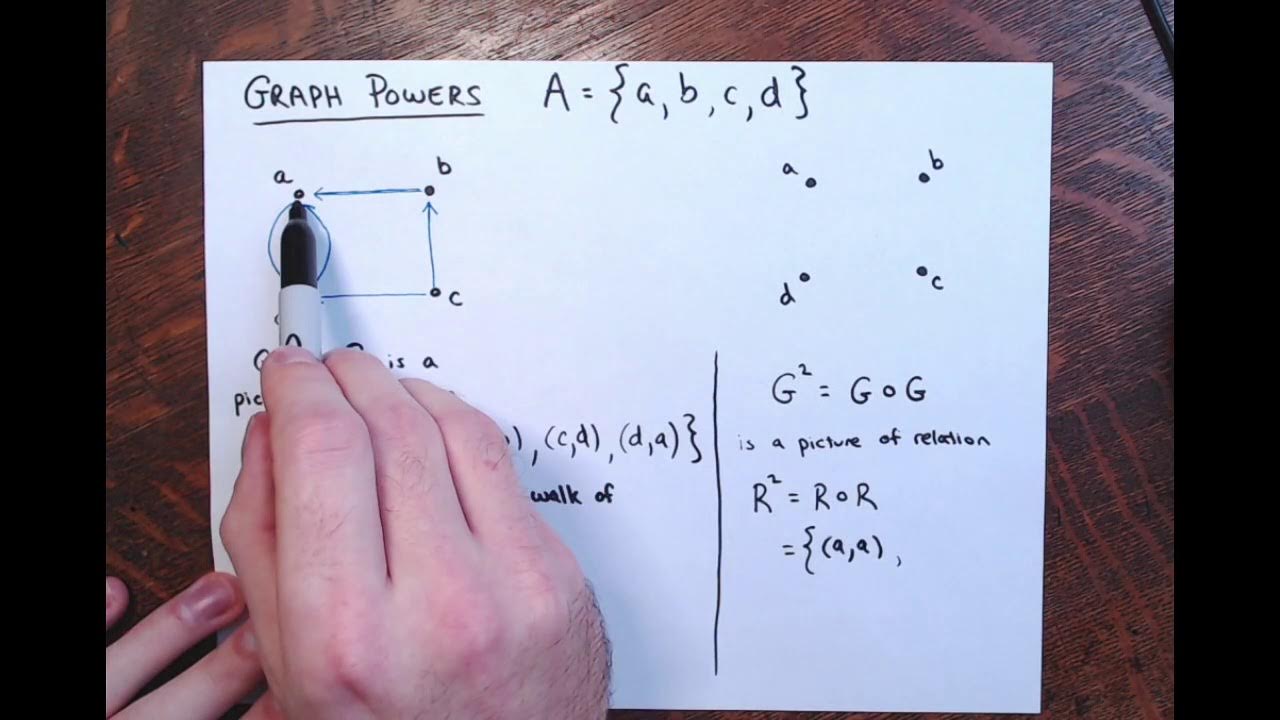 GRAPH POWERS A = {a, b, c, d}
a b
c
a b
d c
is a
pic
), (c,d), (d,a)}
walk of
G² = G∘G
is a picture of relation
R² = R∘R
= {(a,a),